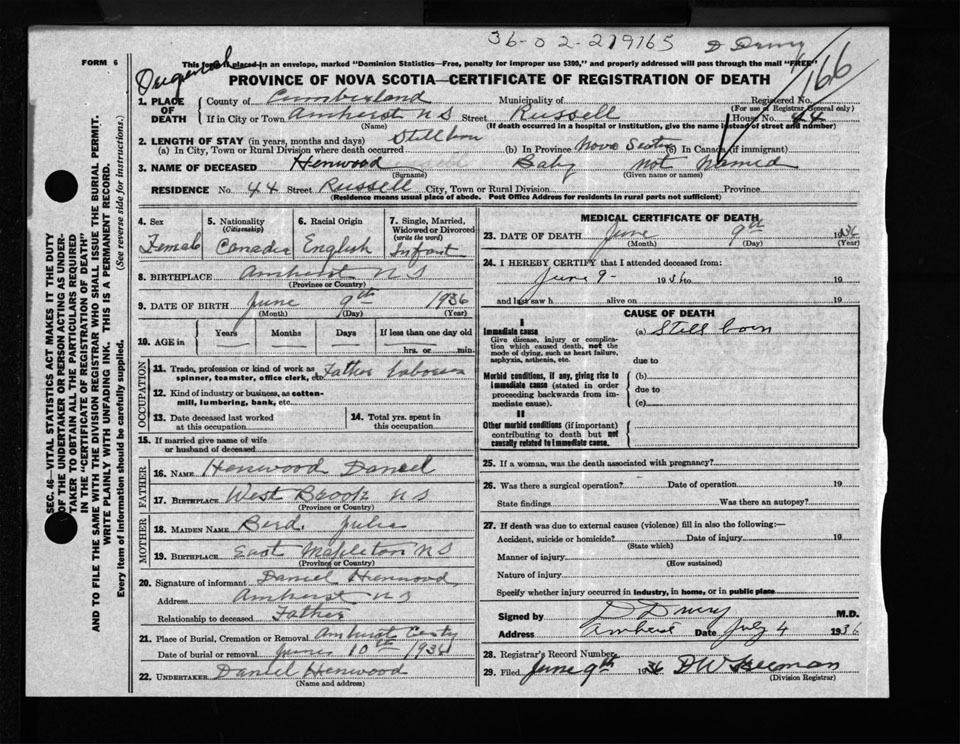 36-02-219165 D Drury
FORM 6
This form if placed in an envelope, marked "Dominion Statistics—Free, penalty for improper use $300," and properly addressed will pass through the mail "FREE"
PROVINCE OF NOVA SCOTIA—CERTIFICATE OF REGISTRATION OF DEATH
166
1. PLACE OF DEATH
County of Cumberland Municipality of Registered No.
(For use of Registrar General only)
If in City or Town Amherst N S Street Russell House No. 44
(Name) (If death occurred in a hospital or institution, give the name instead of street and number)
2. LENGTH OF STAY (in years, months and days) Stillborn
(a) In City, Town or Rural Division where death occurred (b) In Province Nova Scotia (c) In Canada (if immigrant)
3. NAME OF DECEASED Henwood Baby not Named
(Surname) (Given name or names)
RESIDENCE No. 44 Street Russell City, Town or Rural Division Province
(Residence means usual place of abode. Post Office Address for residents in rural parts not sufficient)
4. Sex Female
5. Nationality (Citizenship) Canadia
6. Racial Origin English
7. Single, Married, Widowed or Divorced (write the word) Infant
8. BIRTHPLACE Amherst N S
(Province or Country)
9. DATE OF BIRTH June 9th 1936
(Month) (Day) (Year)
10. AGE in Years Months Days If less than one day old
hrs. or min.
OCCUPATION
11. Trade, profession or kind of work as spinner, teamster, office clerk, etc. Father Laborer
12. Kind of industry or business, as cotton-mill, lumbering, bank, etc.
13. Date deceased last worked at this occupation
14. Total yrs. spent in this occupation
15. If married give name of wife or husband of deceased
FATHER
16. NAME Henwood Daniel
17. BIRTHPLACE West Brook N S
(Province or Country)
MOTHER
18. MAIDEN NAME Bird. Julia
19. BIRTHPLACE East Mapleton N S
(Province or Country)
20. Signature of informant Daniel Henwood
Address Amherst N S
Relationship to deceased Father
21. Place of Burial, Cremation or Removal Amherst
Date of burial or removal June 10th 1936
22. UNDERTAKER Daniel Henwood
(Name and address)
MEDICAL CERTIFICATE OF DEATH
23. DATE OF DEATH June 9th 1936
(Month) (Day) (Year)
24. I HEREBY CERTIFY that I attended deceased from:
June 9- 1936 to 19
and last saw h alive on 19
CAUSE OF DEATH
I
Immediate cause (a) Still born
Give disease, injury or complication which caused death, not the mode of dying, such as heart failure, asphyxia, asthenia, etc.
due to
Morbid conditions, if any, giving rise to immediate cause (stated in order proceeding backwards from immediate cause).
(b)
due to
(c)
II
Other morbid conditions (if important) contributing to death but not causally related to immediate cause.
25. If a woman, was the death associated with pregnancy?
26. Was there a surgical operation? Date of operation 19
State findings Was there an autopsy?
27. If death was due to external causes (violence) fill in also the following:—
Accident, suicide or homicide? Date of injury 19
(State which)
Manner of injury
(How sustained)
Nature of injury
Specify whether injury occurred in industry, in home, or in public place
Signed by D Drury M.D.
Address Amherst Date July 4 1936
28. Registrar's Record Number
29. Filed June 9th 1936 D W Beeman
(Division Registrar)
SEC. 46—VITAL STATISTICS ACT MAKES IT THE DUTY
OF THE UNDERTAKER OR PERSON ACTING AS UNDER-
TAKER TO OBTAIN ALL THE PARTICULARS REQUIRED
IN THE "CERTIFICATE OF REGISTRATION OF DEATH"
AND TO FILE THE SAME WITH THE DIVISION REGISTRAR WHO SHALL ISSUE THE BURIAL PERMIT.
WRITE PLAINLY WITH UNFADING INK. THIS IS A PERMANENT RECORD.
Every item of information should be carefully supplied. (See reverse side for instructions.)